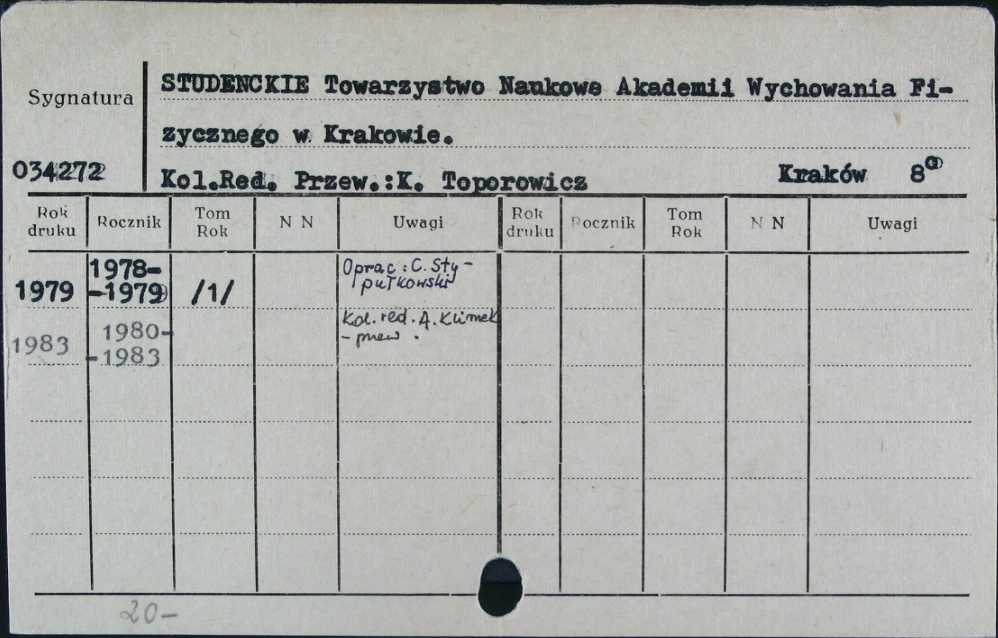 STUDENCKIE Towarzystwo Naukowe Akademii Wychowania Fi-
Sygnatura
zycznego w Krakowie.
034272
Kol.Red. Przew.:K. Toporowicz Kraków 8°
Rok druku Rocznik Tom Rok N N Uwagi Rok druku Rocznik Tom Rok N N Uwagi
1978- Oprac: C. Sty-
1979 -1979 /1/ pułkowski
1980- Kol. red. A. Klimek
1983 -1983 - przew.
20-